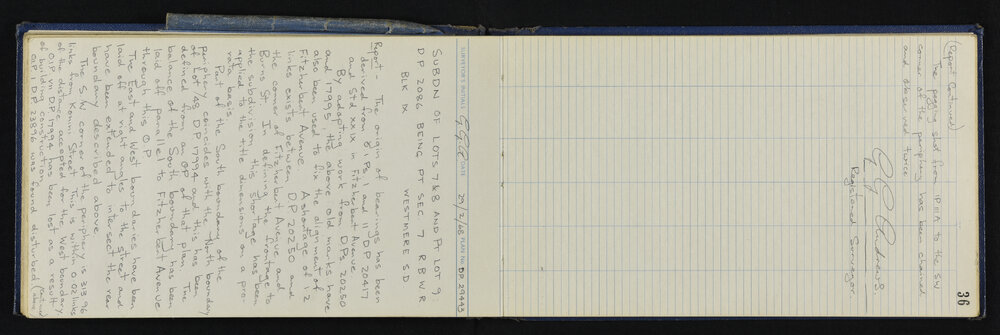 SURVEYOR'S INITIALS G.G.A. DATE 20/2/68 PLAN No. DP 29443
SUBDN OF LOTS 7 & 8 AND PT LOT 9
DP 2086 BEING PT SEC 7 R B W R
BLK IX WESTMERE S D
Report - The origin of bearings has been
derived from OIPs I and II DP 20417
and Std XXIX in Fitzherbert Avenue
By adopting work from DPs 20250
and 17905, the above old marks have
also been used to fix the alignment of
Fitzherbert Avenue. A shortage of 1.2
links exists between DP 20250 and
the corner of Fitzherbert Avenue and
Burns St. In defining the frontage to
the subdivision, this shortage has been
applied to the title dimensions on a pro-
rata basis.
Part of the South boundary of the
periphery coincides with the North boundary
of Lot 48 DP 17994 and this has been
defined from an OP of that plan. The
balance of the South boundary has been
laid off parallel to Fitzherbert Avenue
through this OP
The East and West boundaries have been
laid off at right angles to the street and
have been extended to intersect the rear
boundary described above
The S W corner of the periphery is 313.96
links from Konini Street. This is within 0.02 links
of the distance accepted for the West boundary.
OIP VII DP 17994 has been lost as a result
of building construction.
OIP I DP 23896 was found disturbed (Continued above)
36
(Report Continued)
The pegging shot from IP IIA to the SW
corner of the periphery has been chained
and observed twice
G G Andrews.
Registered Surveyor